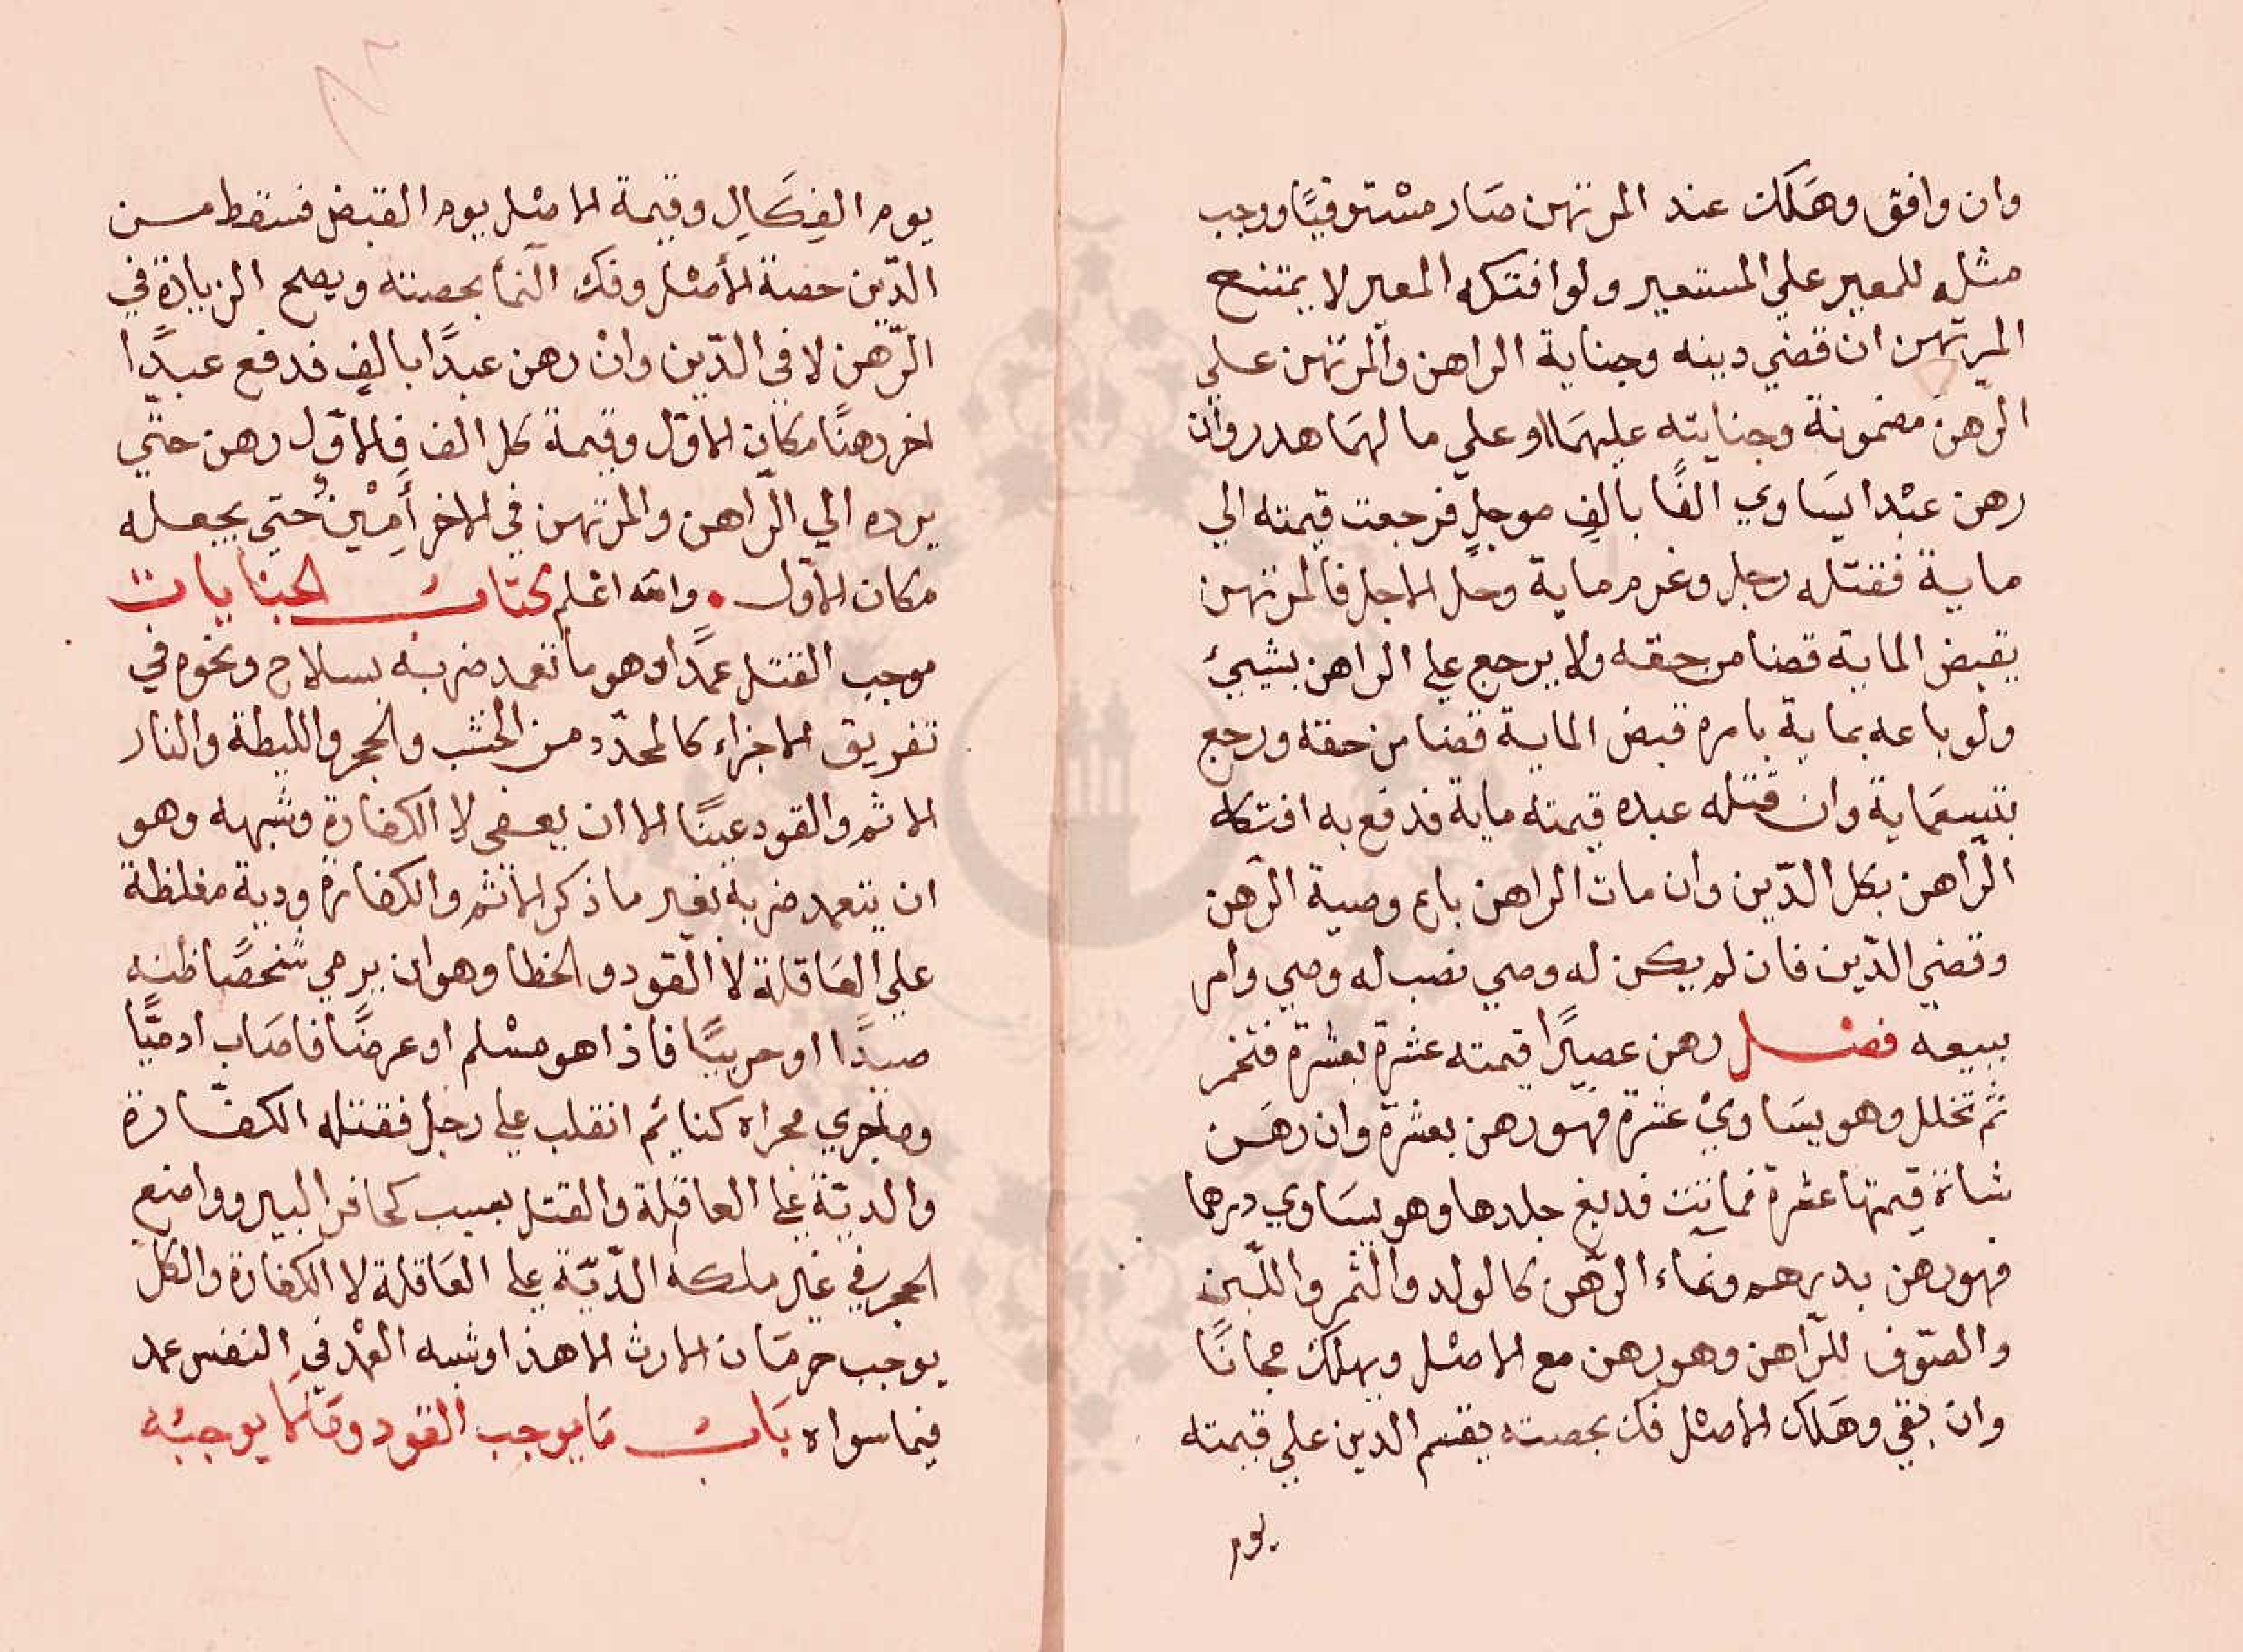 وان وافق وهَلَكَ عند المرتهن صَار مسْتوفيًا ووجب
مثله للمعير علي المستعير ولو افتكه المعير لا يمتنع
المرتهن ان قضي دينه وجناية الراهن والمرتهن علي
الرّهن مضمونة وجنايته عليهمَا وعلي ما لهمَا هدر وان
رهن عبْدا يسَاوي الفًا بالفٍ موجلٍ فرجعت قيمته الي
ماية فقتله رجل وغرم ماية وحل الاجل فالمرتهن
يقبض الماية قضا من حقه ولا يرجع علي الراهن بشيئ
ولو باعه بماية بامره قبض الماية قضا من حقه ورجع
بتسعمَاية وان قتله عبده قيمته ماية فدفع به افتكه
الرّاهن بكل الدّين وان مات الراهن باع وصية الرّهن
وقضي الدّين فان لم يكن له وصي نصب له وصي وامر
ببيعه فصْل رهن عصيرًا قيمته عشرة بعشرة فتخمر
ثمّ تخلل وهو يسَاويْ عشرة فهو رهن بعشرة وان رهَن
شاة قيمتها عشرة فماتت فدبغ جلدها وهو يسَاوي درهما
فهو رهن بدرهم ونماء الرّهن كالولد والثمر واللّبن
والصّوف للرّاهن وهو رهن مع الاصْل ويهلك مجانًا
وان بقي وهَلك الاصْل فك بحصته يقسم الدين علي قيمته
يوم
يوم الفِكَالِ وقيمة الاصْل يوم القبض فسقط مـن
الدّين حصة الأصْل وفك النمأ بحصته ويصح الزيادة في
الرّهن لا في الدّين وانْ رهن عبدًا بالفٍ فدفع عبدًا
اخر رهنًا مكان الاوّل وقيمة كل الف فالاوّل رهن حتّي
يرده الي الرّاهن والمرتهن في الاخر أَمِيْنُ حتي يجعله
مكان الاوّل . والله اعْلم كتابُ الجنايات
موجب القتل عمدًا وهو ما تعمد ضربه بسلاح ونحوه في
تفريق الاجزاء كالمحدّد من الخشب والحجر والليطة والنار
الاثم والقود عينًا الا ان يعفي لا الكفارة وشبهه وهو
ان يتعمد ضربه بغير ما ذكر الاثم والكفارة ودية مغلظة
علي العَاقلة لا القود والخطا وهو ان يرمي شخصًا ظنه
صيدًا او حربيًا فاذا هو مسْلم او عرضًا فاصَاب ادميًّا
وما جري مجراه كنايم انقلب علي رجل فقتله الكفّارة
والديّة علي العاقلة والقتل بسبب كحافر البير وواضع
الحجر في غير ملكه الدّيّة علي العَاقلة لا الكفارة والكل
يوجب حرمَان الارث الا هذا وشبه العمْد في النفس عمد
فيما سواه بَابُ مَا يوجب القود ومَا لا يوجبُه